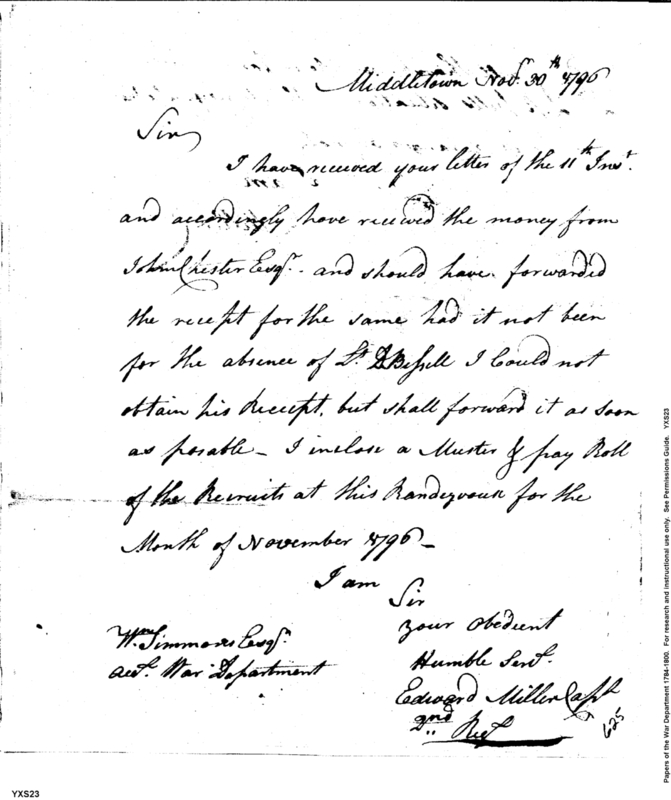 Middletown Nov.r 30th 1796
Sir
I have received your letter of the 11th Inst.
and accordingly have received the money from
John Chester Esqr. and should have forwarded
the recept for the same had it not been
for the absence of Lt. D Bissell I Could not
obtain his Receipt, but shall forward it as soon
as posable - I inclose a Muster & pay Roll
of the Recruits at this Randezvous for the
Month of November 1796 -
I am
Sir
your Obedient
Humble Servt.
Edward Miller Capt
2nd Regt
Wm. Simmons Esqr.
Acct. War Department
625
YXS23
Papers of the War Department 1784-1800. For research and instructional use only. See Permissions Guide. YXS23